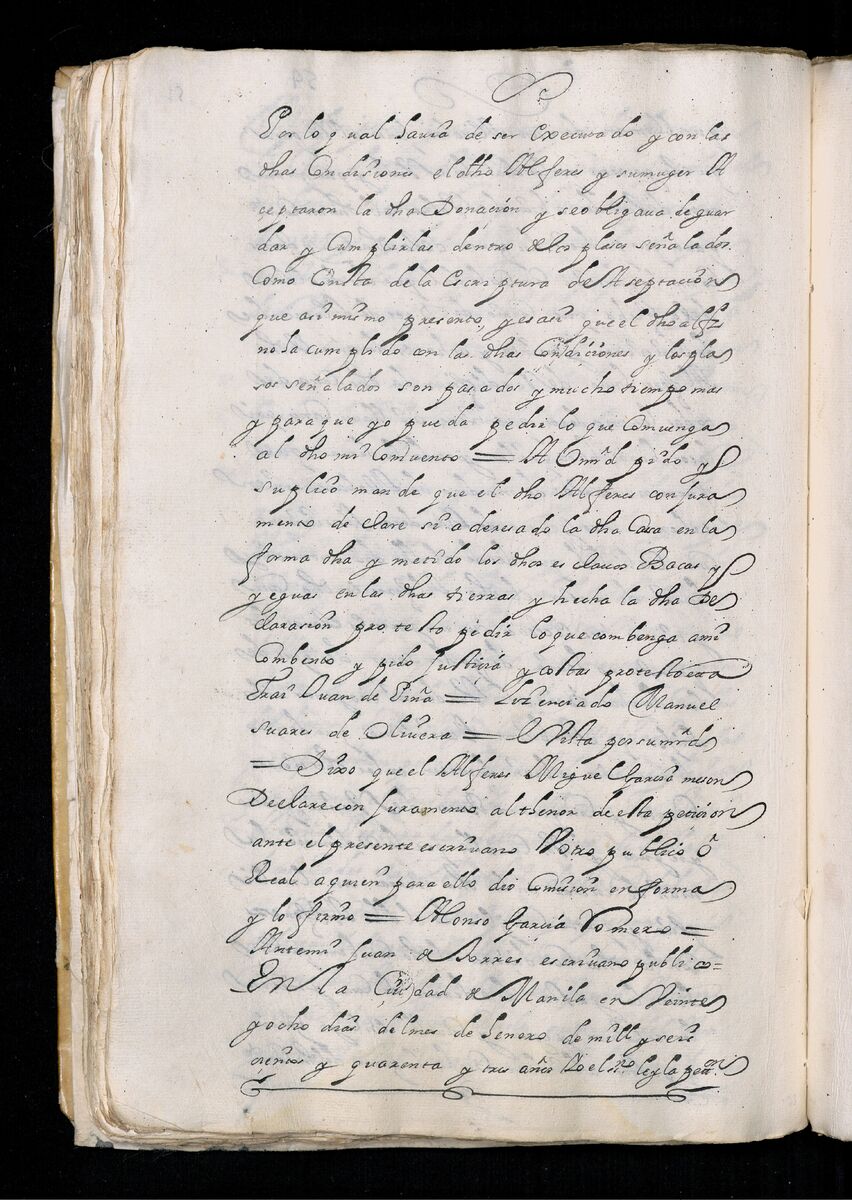 Por lo qual havia de ser executado y con las
dhas Condisiones el dho Alferes y su muger A
ceptaron la dha Donación y se obligava de guar
dar y Cumplirlas dentro de los plasos señalados
Como Consta de la Escriptura de Aseptacion
que asi mismo presento, y es asi que el dho alfes
no ha cumplido con las dhas Condiciones y los pla
sos señalados son pasados y mucho tiempo mas
y para que yo pueda pedir lo que Comvenga
al dho mi Comvento = A Vmrd pido y
suplico mande que el dho Alferes con jura
mento declare si a deresado la dha Casa en la
forma dha y metido los dhos esclavos Bacas y
yeguas en las dhas tierras y hecha la dha De
clarasion protesto pedir lo que combenga a mi
Combento y pido justicia y costas protesto etta
Frai Juan de Piña = Lizenciado Manuel
suares de Olivera = Vista por su mrd
= Dixo que el Alferes Miguel Garcia meson
Declare con juramento al thenor de esta peticion
ante el presente escrivano V otro publico ô
Real a quien para ello dio Comision en forma
y lo firmo = Alonso Garcia Romero =
Ante mi Juan de Torres escrivano publico =
En la Ciudad de Manila en Veinte
y ocho dias del mes de henero de mill y seis
cientos y quarenta y tres años Yo el sno ley la petn